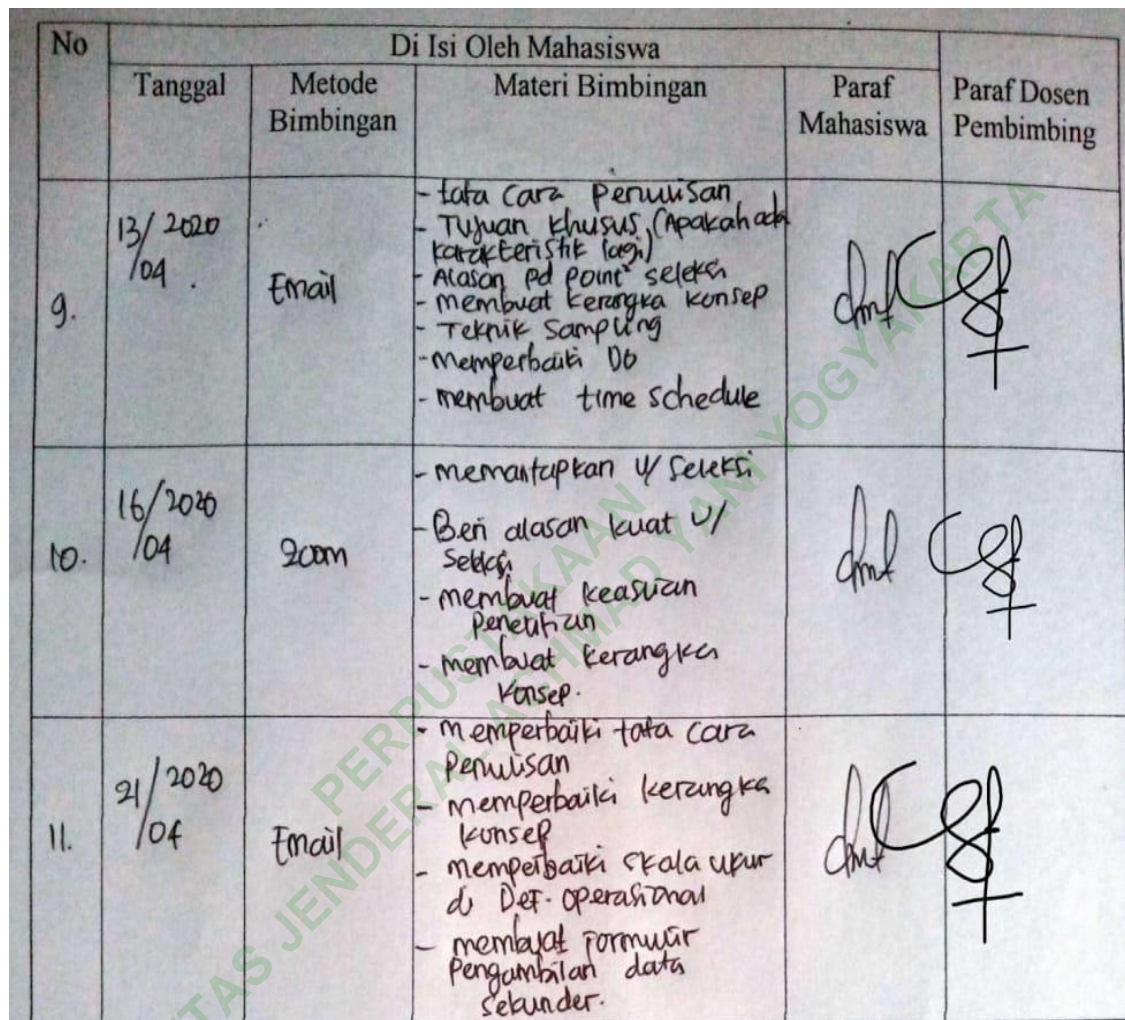 No
Di Isi Oleh Mahasiswa
Tanggal
Metode
Bimbingan
Materi Bimbingan
Paraf
Mahasiswa
Paraf Dosen
Pembimbing
9.
13/04 2020
Email
- tata cara penulisan
- Tujuan khusus, (Apakah ada
karakteristik lagi)
- Alasan pd point² seleksi
- membuat kerangka konsep
- Teknik Sampling
- Memperbaiki DO
- membuat time schedule
10.
16/04 2020
Zoom
- memantapkan u/ seleksi
- Beri alasan kuat u/
Seleksi
- membuat keaslian
Penelitian
- membuat kerangka
Konsep.
11.
21/04 2020
Email
- memperbaiki tata cara
Penulisan
- memperbaiki kerangka
konsep
- memperbaiki skala ukur
di Def. operasional
- membuat formulir
Pengambilan data
Sekunder.
PERPUSTAKAAN
TAS JENDERAL ACHMAD YANI YOGYAKARTA